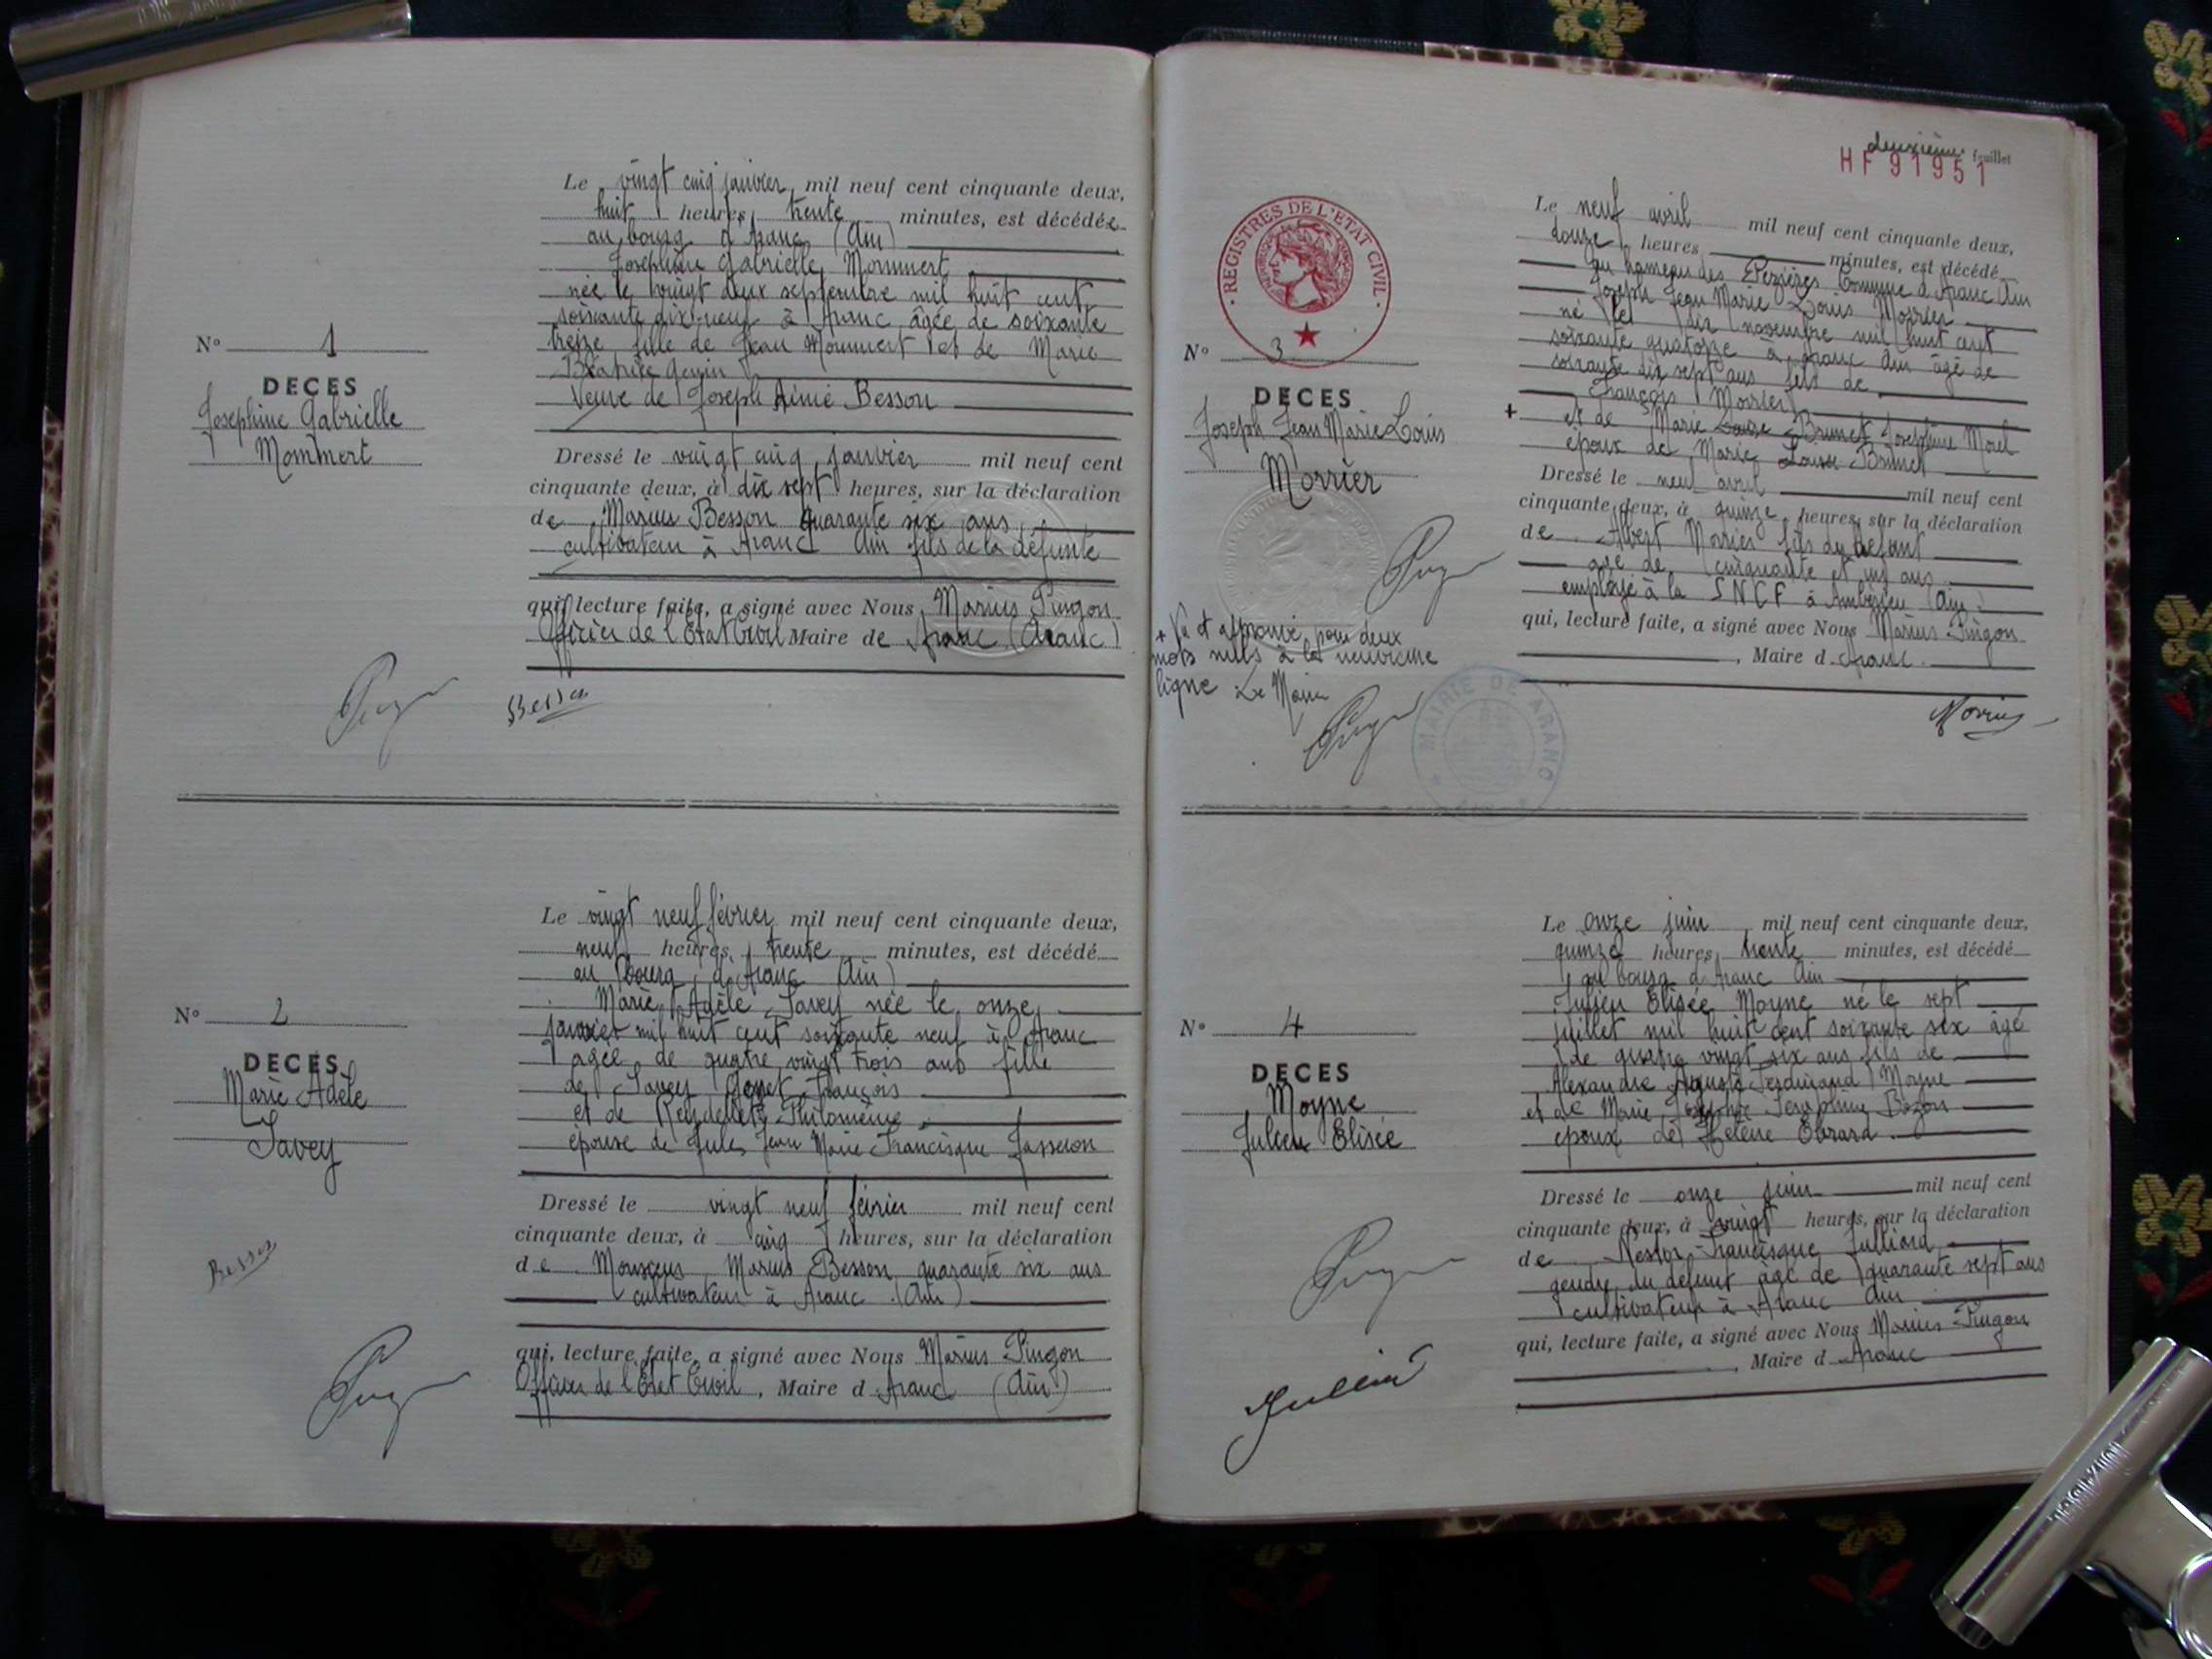 Le vingt cinq janvier, mil neuf cent cinquante deux,
huit heures trente minutes, est décédée
au bourg d'Aranc (Ain)
Josephine Gabrielle Mommert
née le vingt deux septembre mil huit cent
soixante dix-neuf à Aranc âgée de soixante
treize fille de Jean Mommert et de Marie
Béatrice
Veuve de Joseph Aimé Besson
N° 1
DECES
Josephine Gabrielle
Mommert
Dressé le vingt cinq janvier mil neuf cent
cinquante deux, à dix sept heures, sur la déclaration
de Marius Besson quarante six ans
cultivateur à Aranc Ain fils de la défunte
qui, lecture faite, a signé avec Nous Marius Pingon
Officier de l'Etat Civil Maire de Aranc (Aranc)
Besson
Le vingt neuf février mil neuf cent cinquante deux,
neuf heures, trente minutes, est décédé
au bourg d'Aranc (Ain)
Marie Adèle Savey née le onze
janvier mil huit cent soixante neuf à Aranc
agée de quatre vingt trois ans fille
de Savey Gonet François
et de Philomène
épouse de Jules Jean Marie Francisque Jasseron
N° 2
DECES
Marie Adèle
Savey
Dressé le vingt neuf février mil neuf cent
cinquante deux, à cinq heures, sur la déclaration
de Monsieur Marius Besson quarante six ans
cultivateur à Aranc (Ain)
Besson
qui, lecture faite, a signé avec Nous Marius Pingon
Officier de l'Etat Civil, Maire d Aranc (Ain)
deuxième feuillet
HF 91951
REGISTRES DE L'ETAT CIVIL
Le neuf avril mil neuf cent cinquante deux,
douze heures minutes, est décédé
au hameau des Pézières Commune d'Aranc Ain
Joseph Jean Marie Louis Morrier
né le dix novembre mil huit cent
soixante quatorze à Aranc Ain âgé de
soixante dix sept ans fils de
François Morrier
+ et de Marie Louise Brunet Joséphine
époux de Marie Louise Brunet
N° 3
DECES
Joseph Jean Marie Louis
Morrier
Dressé le neuf avril mil neuf cent
cinquante deux, à quinze heures, sur la déclaration
de Albert Morrier fils du défunt
age de cinquante et un ans
employé à la SNCF à Ambérieu (Ain)
qui, lecture faite, a signé avec Nous Marius Pingon
, Maire d Aranc
+ Vu et approuvé pour deux
mots nuls à la neuvième
ligne Le Maire
MAIRIE DE ARANC
Morrier
Le onze juin mil neuf cent cinquante deux,
quinze heures trente minutes, est décédé
au bourg d'Aranc Ain
Julien Elisée Moyne né le sept
juillet mil huit cent soixante six âgé
de quatre vingt six ans fils de
Alexandre Auguste Ferdinand Moyne
et de Marie Josephte Séraphine Bozon
époux de Hélène Ebrard
N° 4
DECES
Moyne
Julien Elisée
Dressé le onze juin mil neuf cent
cinquante deux, à vingt heures, sur la déclaration
de Nestor Francisque Julliard
gendre du défunt âgé de quarante sept ans
cultivateur à Aranc Ain
qui, lecture faite, a signé avec Nous Marius Pingon
, Maire d Aranc
Julliard